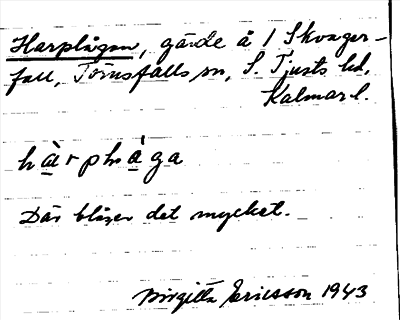 Harplågan, gärde å 1 Skvager-
fall, Törnsfalls sn, S. Tjusts hd,
Kalmar l.
hàrplåga
Där blåser det mycket.
Birgitta Ericsson 1943